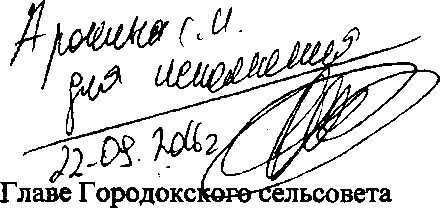 Аронина С.И.
для исполнения
22-09. 2016г
Главе Городокского сельсовета